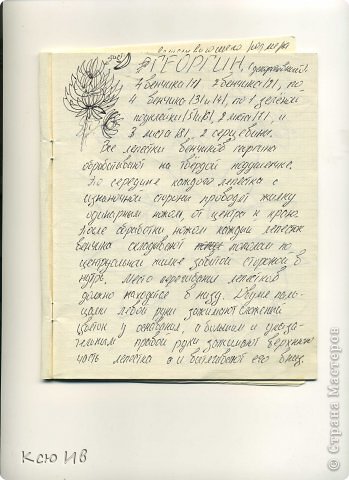 лист
размера
ГЕОРГИН,
4 венчика 171 2 венчика 121, по
4 венчика 131 и 141, по 1 зелёной
подчашки 151 и 161, 2 листа 171, и
3 листа 181, 2 сердцевины.
Все лепестки венчиков георгина
обрабатывают на твёрдой подушечке.
По середине каждого лепестка с
изнаночной стороны проводят жилку
одинарным ножом, от центра к краю.
После обработки ножом каждый лепесток
венчика складывают пополам по
центральной жилке загибая стороной в
нутрь. Место перегибания лепестков
должно находится в низу. Двумя паль-
цами левой руки зажимают сложеный
цветок у основания, а большим и указа-
тельным правой руки зажимают верхнюю
часть лепестка и вытягивают его вниз.
Ксю ИВ
© Страна Мастеров